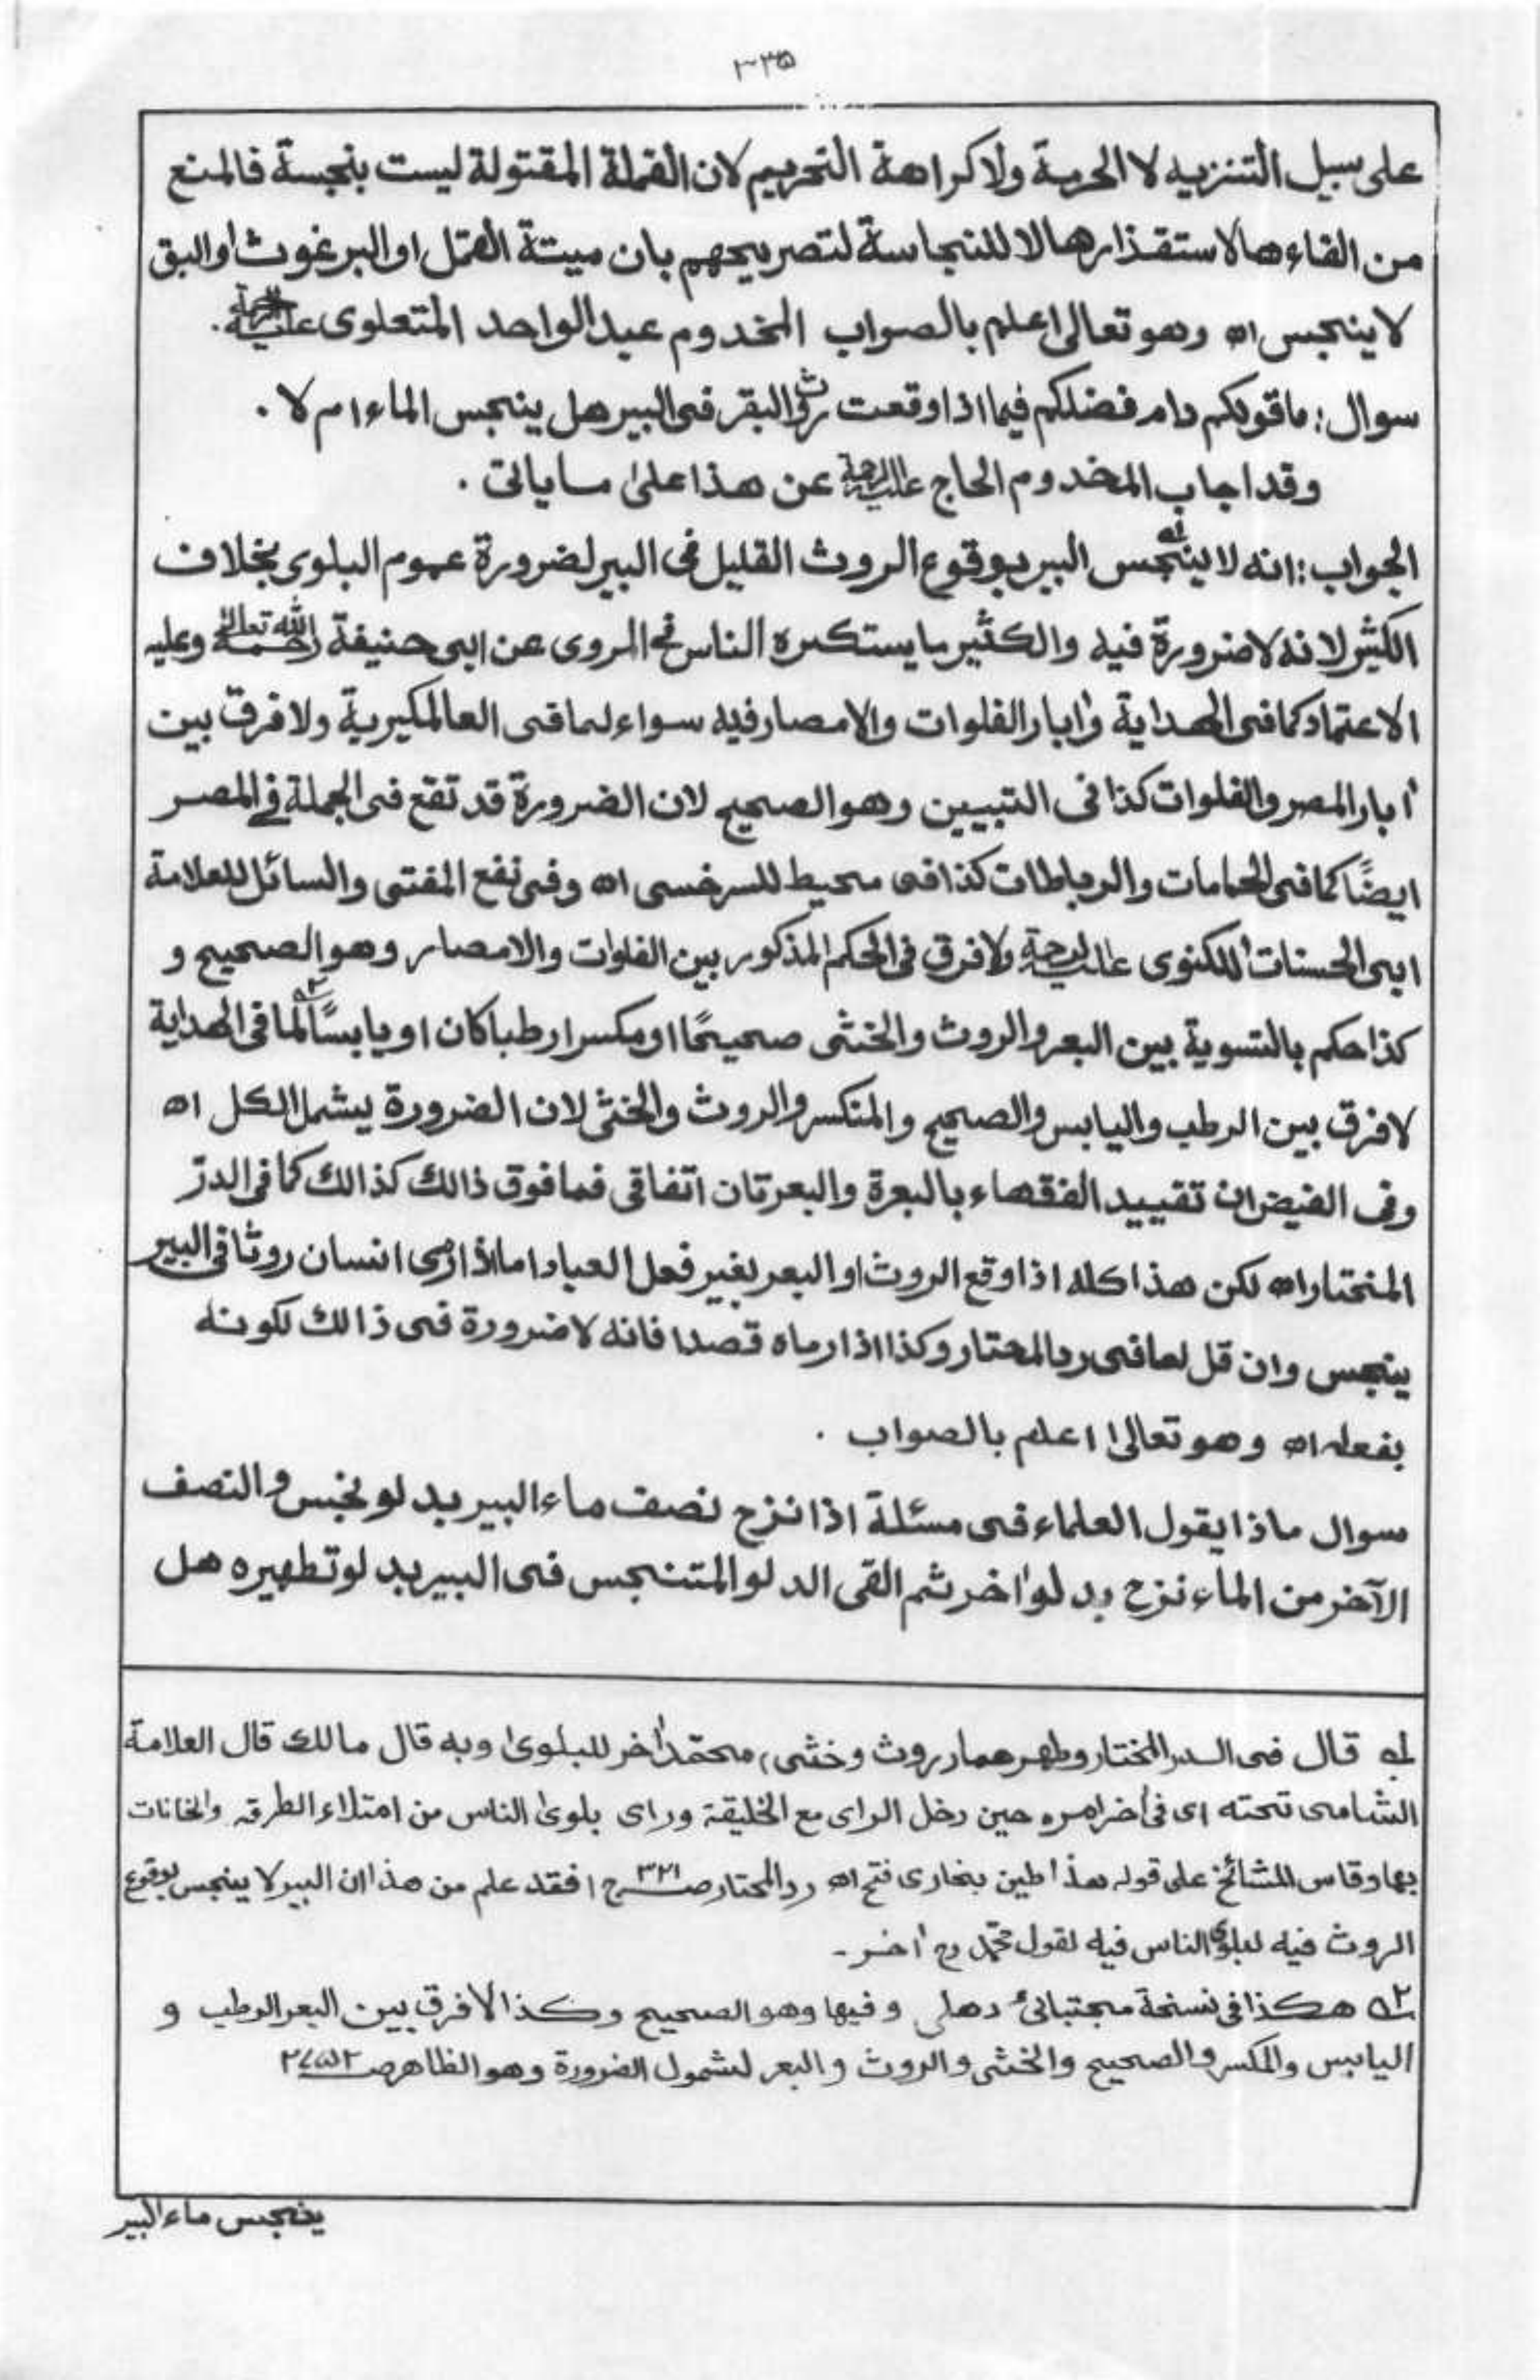 ۳۳۵
على سبيل التنزيه لا الحرمة ولا كراهة التحريم لان القملة المقتولة ليست بنجسة فالمنع
من القاءها لاستقذارها لا للنجاسة لتصريحهم بان ميتة القمل او البرغوث او البق
لا ينجس اه وهو تعالى اعلم بالصواب المخدوم عبد الواحد المتعلوى عليه الرحمة .
سوال : ما قولكم دام فضلكم فيما اذا وقعت روث البقر فى البير هل ينجس الماء ام لا .
وقد اجاب المخدوم الحاج عليه الرحمة عن هذا على ما ياتى .
الجواب : انه لا ينجس البير بوقوع الروث القليل فى البير لضرورة عموم البلوى بخلاف
الكثير لانه لا ضرورة فيه والكثير ما يستكثره الناس فى المروى عن ابى حنيفة رحمه الله تعالى وعليه
الاعتماد كما فى الهداية وابار الفلوات والامصار فيه سواء لما فى العالمكيرية ولا فرق بين
ابار المصر والفلوات كذا فى التبيين وهو الصحيح لان الضرورة قد تقع فى الجملة فى المصر
ايضًا كما فى الحمامات والرباطات كذا فى محيط للسرخسى اه وفى نفع المفتى والسائل للعلامة
ابى الحسنات اللكنوى عليه الرحمة ولا فرق فى الحكم المذكور بين الفلوات والامصار وهو الصحيح و
كذا حكم بالتسوية بين البعر والروث والخثى صحيحًا او مكسرا رطبا كان او يابسًا ٢ه لما فى الهداية
لا فرق بين الرطب واليابس والصحيح والمنكسر والروث والخثى لان الضرورة يشمل الكل اه
وفى الفيض ان تقييد الفقهاء بالبعرة والبعرتان اتفاقى فما فوق ذالك كذالك كما فى الدر
المختار اه لكن هذا كله اذا وقع الروث او البعر بغير فعل العباد اما اذا رمى انسان روثا فى البير
ينجس وان قل لما فى رد المحتار وكذا اذا رماه قصدا فانه لا ضرورة فى ذالك لكونه
بفعله اه وهو تعالى اعلم بالصواب .
سوال ماذا يقول العلماء فى مسئلة اذا نزح نصف ماء البير بدلو نجس والنصف
الآخر من الماء نزح بدلو اخر ثم القى الدلو المتنجس فى البير بدلو تطهيره هل
له قال فى الدر المختار وطهرهما روث وخثى، محمّد اخر للبلوى وبه قال مالك قال العلامة
الشامى تحته اى فى اخر امره حين دخل الراى مع الخليفة وراى بلوى الناس من امتلاء الطرقه والخانات
بها وقاس المشائخ على قوله هذا طين بخارى فتح اه رد المحتار ص ٣٢١ ج ا فقد علم من هذا ان البير لا ينجس بوقوع
الروث فيه لبلوى الناس فيه لقول محمّد رح اخر -
٢ه هكذا فى نسخة مجتبائى دهلى وفيها وهو الصحيح وكذا لا فرق بين البعر الرطب و
اليابس والمكسر والصحيح والخثى والروث والبعر لشمول الضرورة وهو الظاهر
ينجس ماء البير